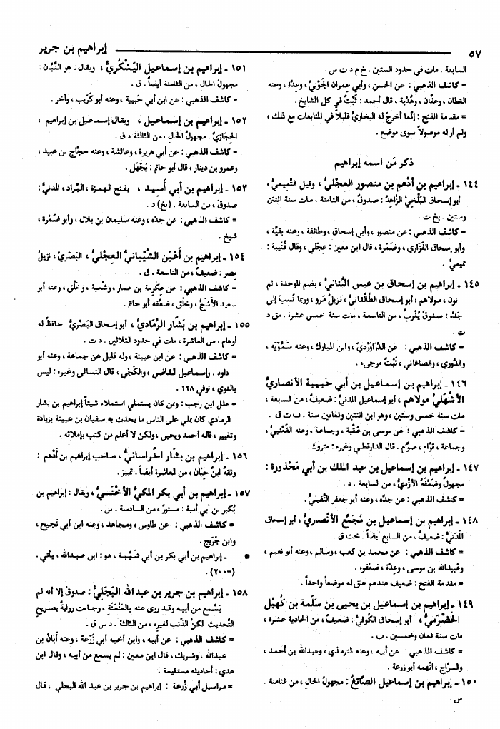 ٥٧
إبراهيم بن جرير
السابعة . مات في حدود الستين . خ م د ت س .
= كاشف الذهبي : عن الحسن ، وأبي عمران الجَوْني ، وعدّة ، وعنه
القطان ، وعفّان ، وهُدْبة ، قال أحمد : ثَبْتٌ في كل المشايخ .
= مقدمة الفتح : إنما أخرج له البخاريُّ قليلاً في المتابعات مع ذلك ،
ولم أر له موصولاً سوى موضع .
ذكر مَن اسمه إبراهيم
١٤٤ ـ إبراهيم بن أدهم بن منصور العِجْليُّ ، وقيل التميميُّ ،
أبو إسحاق البَلْخيُّ الزاهدُ : صدوقٌ ، من الثامنة . مات سنة اثنتين
وستين . بخ ت .
= كاشف الذهبي : عن منصور ، وأبي إسحاق ، وطائفة ، وعنه بقيّة ،
وأبو إسحاق الفَزَاري ، وضَمْرة ، قال ابن معين : عِجْلي ، وقال قتيبة :
تميميٌّ .
١٤٥ ـ إبراهيم بن إسحاق بن عيسى البُنانيُّ ، بضم الموحدة ، ثم
نون ، مولاهم ، أبو إسحاق الطالْقانيُّ ، نزيل مَرْو ، وربما نُسِبَ إلى
جدّه : صدوقٌ يُغْرِبُ ، من التاسعة ، مات سنة خمس عشرة . مق د
ت .
= كاشف الذهبي : عن الدَّرَاوَرْديّ ، وابن المبارك ، وعنه
والدُّوري ، والصاغاني ، ثَبْتٌ مرجىء .
١٤٦ ـ إبراهيم بن إسماعيل بن أبي حبيبة الأنصاريُّ
الأشهليُّ مولاهم ، أبو إسماعيل المدنيُّ : ضعيفٌ ، من السابعة ،
مات سنة خمس وستين ، وهو ابن اثنتين وثمانين سنة . ت ق .
= كاشف الذهبي : عن موسى بن عُقْبة ، وجماعة ، وعنه القَعْنَبيُّ ،
وجماعة ، قوّام ، صوّام . قال الدارقطني وغيره : متروك .
١٤٧ ـ إبراهيم بن إسماعيل بن عبد الملك بن أبي مَحْذورة :
مجهولٌ وضعَّفَهُ الأَزْديُّ ، من السابعة . د .
= كاشف الذهبي : عن جدّه ، وعنه أبو جعفر النُّفَيْليُّ .
١٤٨ ـ إبراهيم بن إسماعيل بن مُجَمِّع الأنصاريُّ ، أبو إسحاق
المدنيُّ : ضعيفٌ ، من السابعة أيضاً . خت ق .
= كاشف الذهبي : عن محمد بن كعب ، وسالم ، وعنه أبو نعيم ،
وعبيدالله بن موسى ، وعدّة ، ضعّفوه .
= مقدمة الفتح : ضعيف عندهم علّق له موضعاً واحداً .
١٤٩ ـ إبراهيم بن إسماعيل بن يحيى بن سَلَمة بن كُهَيْل
الحَضْرميُّ ، أبو إسحاق الكوفيُّ : ضعيفٌ ، من الحادية عشرة ،
مات سنة ثمان وخمسين . ت .
= كاشف الذهبي : عن أبيه ، وعنه وعبدالله بن أحمد ،
والسرّاج ، اتهمه أبو زرعة .
١٥٠ ـ إبراهيم بن إسماعيل الصائغُ : مجهولُ الحالِ ، من الثامنة .
س .
١٥١ ـ إبراهيم بن إسماعيل اليَشْكُريُّ ، ويقال : هو التَّبَّان :
مجهول الحال ، من التاسعة أيضاً . ق .
= كاشف الذهبي : عن ابن أبي حبيبة ، وعنه أبو كُرَيْب ، وآخر .
١٥٢ ـ إبراهيم بن إسماعيل ، ويقال إسماعيل بن إبراهيم ،
الحِجَازيُّ : مجهولُ الحالِ ، من الثالثة . د ق .
= كاشف الذهبي : عن أبي هريرة ، وعائشة ، وعنه حجاج بن عبيد ،
وعمرو بن دينار ، قال أبو حاتم : يُجْهَل .
١٥٣ ـ إبراهيم بن أبي أَسِيد ، بفتح الهمزة ، البَرَّاد ، المدنيُّ :
صدوقٌ ، من السابعة . ( بخ ) د .
= كاشف الذهبي : عن جدّه ، وعنه سليمان بن بلال ، وأبو ضَمْرة ،
شيخ .
١٥٤ ـ إبراهيم بن أَعْيَن الشَّيْبانيُّ العِجْليُّ ، البَصْريُّ ، نزيل
مصر : ضعيفٌ ، من التاسعة . ق .
= كاشف الذهبي : عن عكرمة بن عمار ، وشعبة ، وخَلْق ، وعنه أبو
سعيد الأشجُّ ، وخَلْق ، ضعّفه أبو حاتم .
١٥٥ ـ إبراهيم بن بَشّار الرَّماديُّ ، أبو إسحاق البَصْريُّ : حافظٌ له
أوهام ، من العاشرة ، مات في حدود الثلاثين . د ت .
= كاشف الذهبي : عن ابن عيينة ، وله قليل عن جماعة ، وعنه أبو
داود ، وإسماعيل القاضي ، والكجّي ، قال النسائي وغيره : ليس
بالقوي ، توفي ٢٢٨ .
= علل ابن رجب : وممن كان يستملي استملاءً سيئاً إبراهيم بن بشار
الرمادي كان يملي على الناس ما يحدث به سفيان بن عيينة بزيادة
وتغيير ، قاله أحمد ويحيى ، ولكن لا أعلم من كتب بإملائه .
١٥٦ ـ إبراهيم بن بَشّار الخُراسانيُّ ، صاحب إبراهيم بن أدهم :
وثقه ابنُ حِبّان ، من العاشرة أيضاً . تمييز .
١٥٧ ـ إبراهيم بن أبي بكر المكيُّ الأَخْنَسيُّ ، ويقال : إبراهيم بن
بُكَير بن أبي أمية : مستورٌ ، من السادسة . س .
= كاشف الذهبي : عن طاوس ، ومجاهد ، وعنه ابن أبي نجيح ،
وابن جُرَيْج .
• ـ إبراهيم بن أبي بكر بن أبي شَيْبة ، هو : ابن عبدالله ، يأتي .
( = ٢٠٠ ) .
١٥٨ ـ إبراهيم بن جرير بن عبدالله البَجَليُّ : صدوقٌ إلا أنه لم
يَسْمع من أبيه وقد روى عنه بالعَنْعَنَة ، وجاءت روايةٌ بصريح
التحديث لكنَّ الذنبَ لغيره ، من الثالثة . د س ق .
= كاشف الذهبي : عن أبيه ، وابن أخيه أبي زُرْعة ، وعنه أبان بن
عبدالله ، وشريك ، قال ابن معين : لم يسمع من أبيه ، وقال ابن
عدي : أحاديثه مستقيمة .
= مراسيل أبي زُرْعة : إبراهيم بن جرير بن عبد الله البجلي . قال